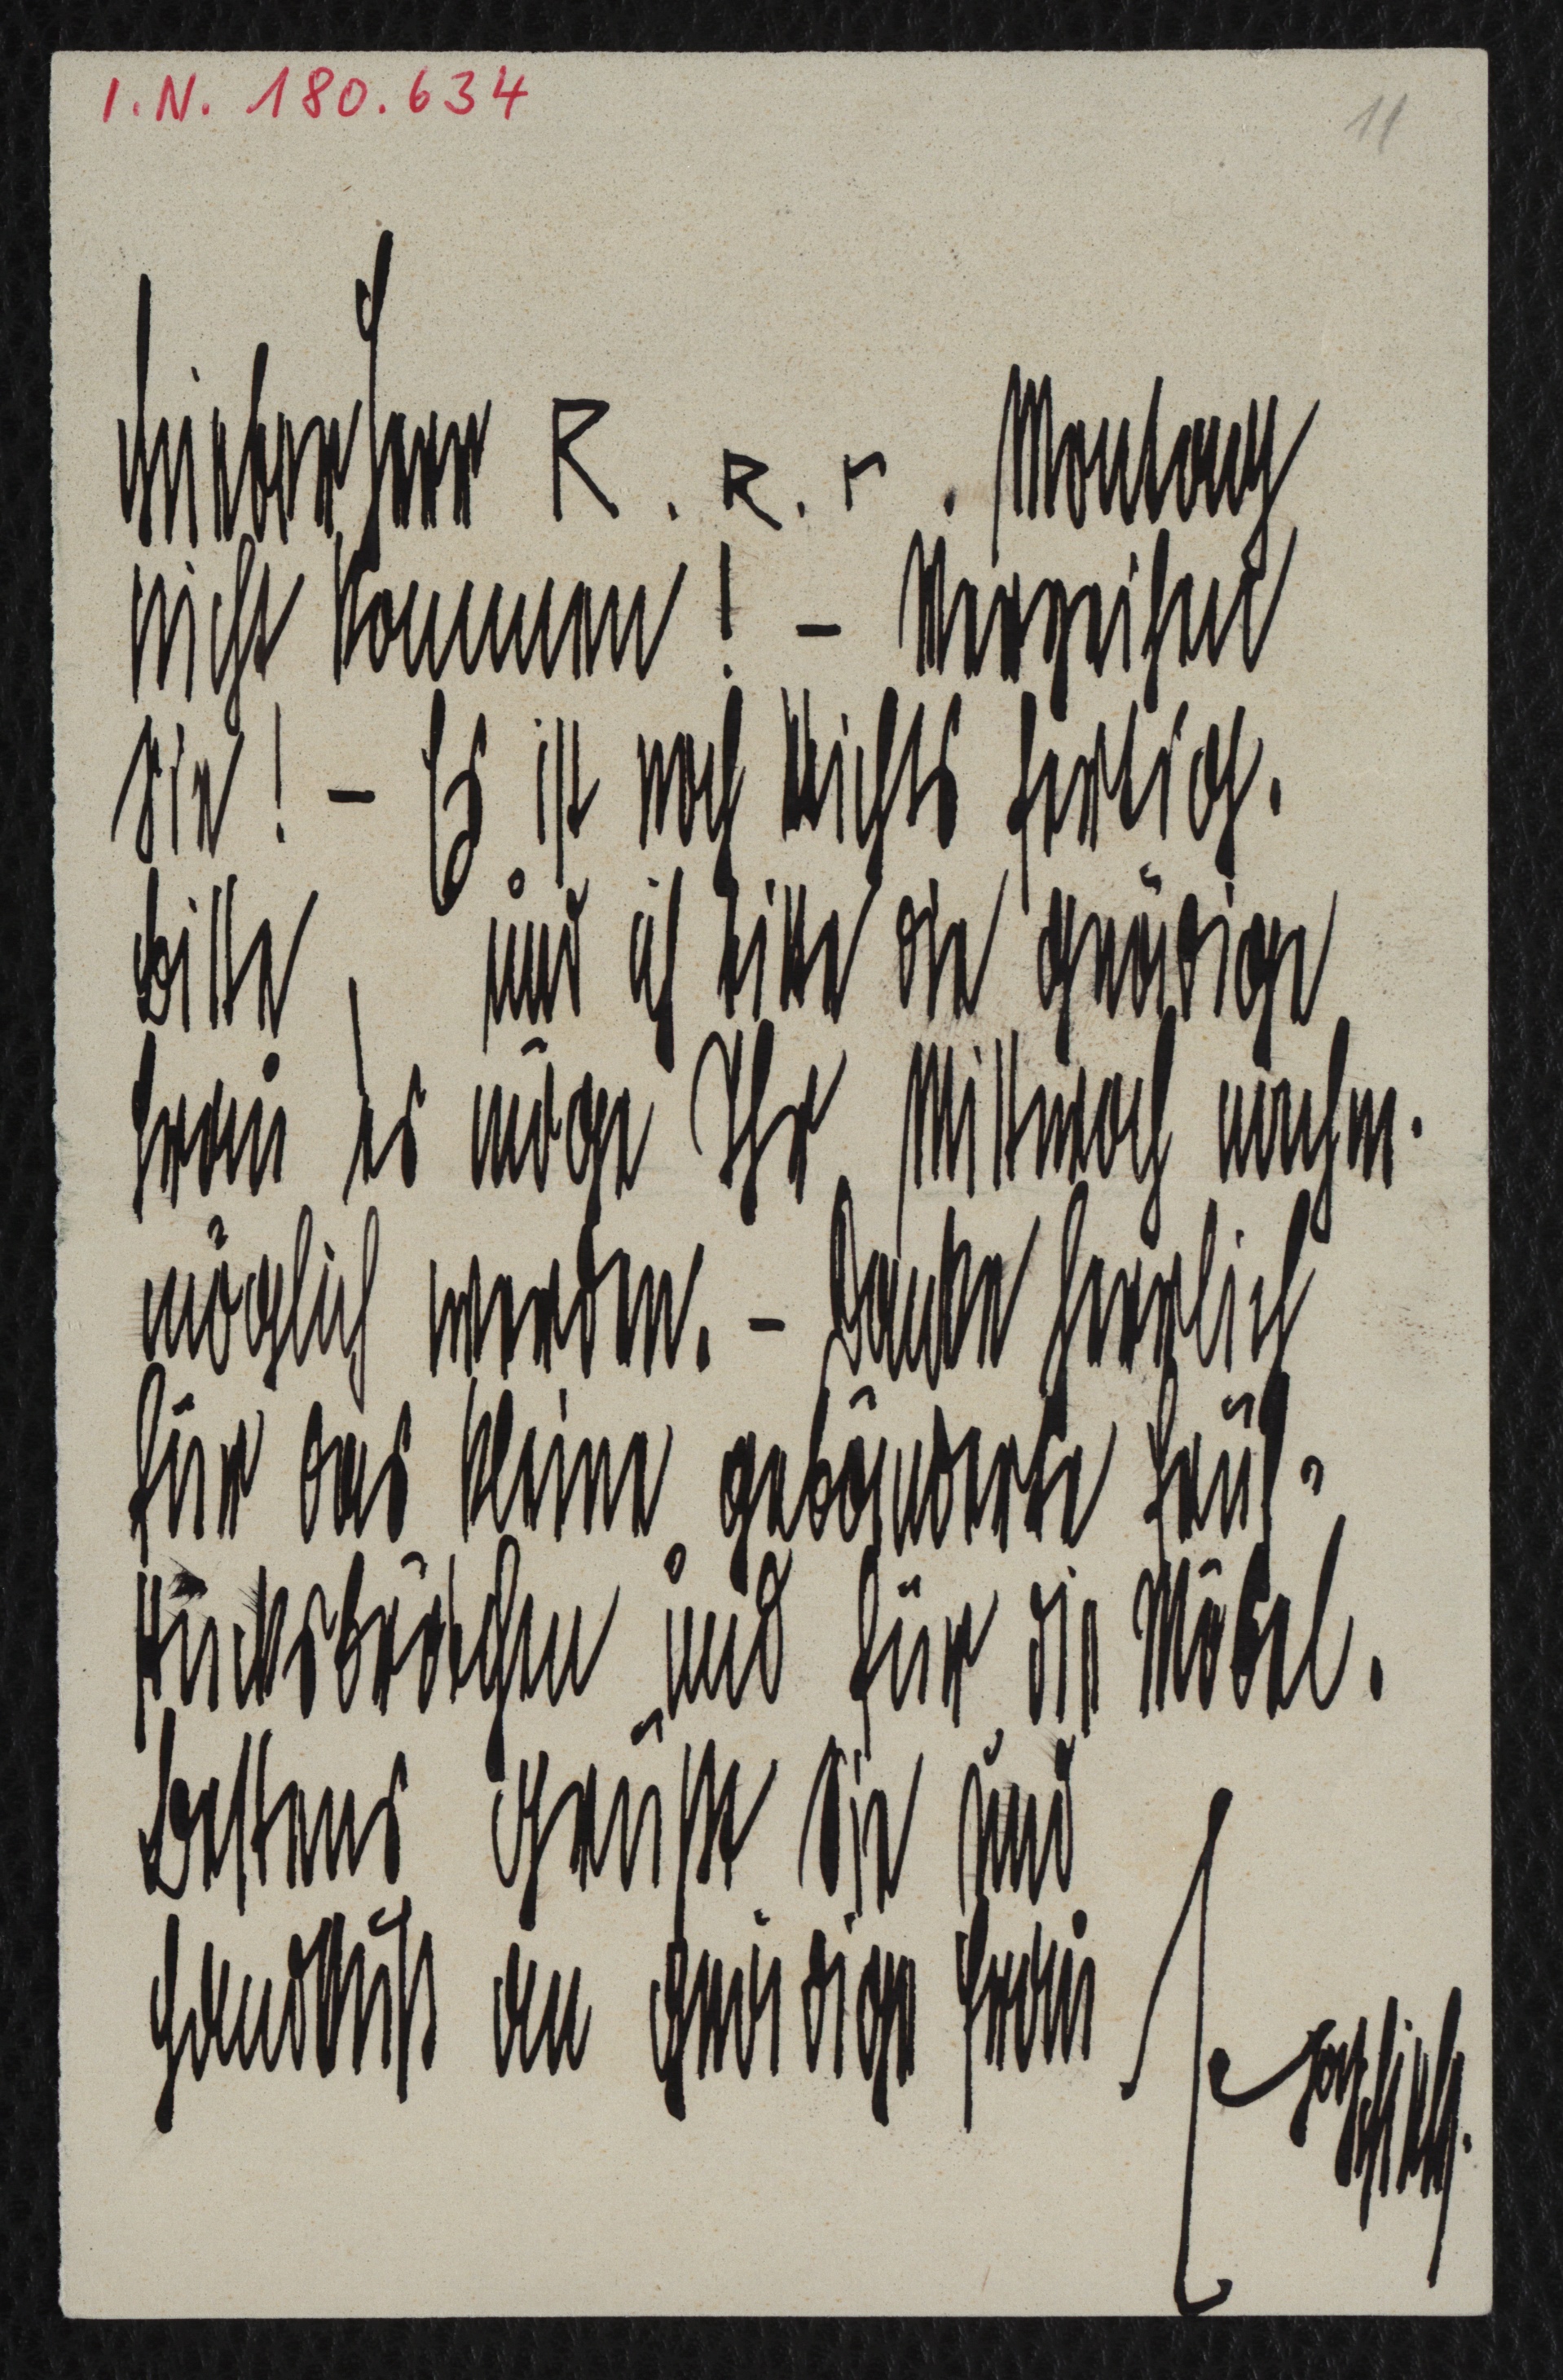 I.N. 180.634
11
Lieber Herr R. R. r. Montag
nicht kommen! – Verzeihen
Sie! – Es ist noch Nichts fertig.
Bitte, und ich bitte die gnädige
Frau es möge Ihr Mittwoch nachm.
möglich werden. – Danke herzlich
für das kleine gebänderte Früh-
stücksbrötchen und für die Möbel.
Bestens Grüße Sie und
Handkuß an gnädige Frau